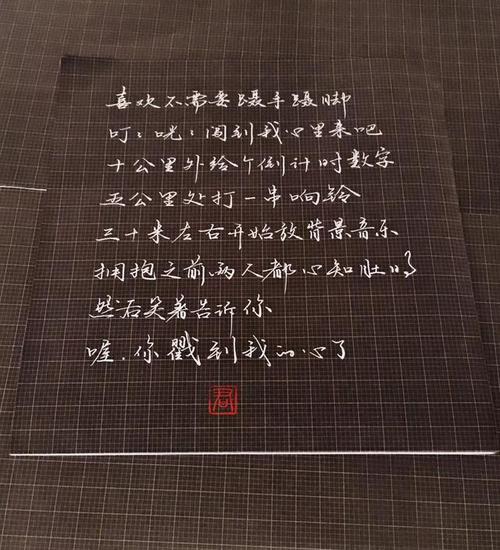 喜欢不需要蹑手蹑脚
叮:咣:闯到我心里来吧
十公里外给个倒计时数字
五公里处打一串响铃
三十米左右开始放背景音乐
拥抱之前两人都心知肚明
然后笑著告诉你
喔,你戳到我的心了
君